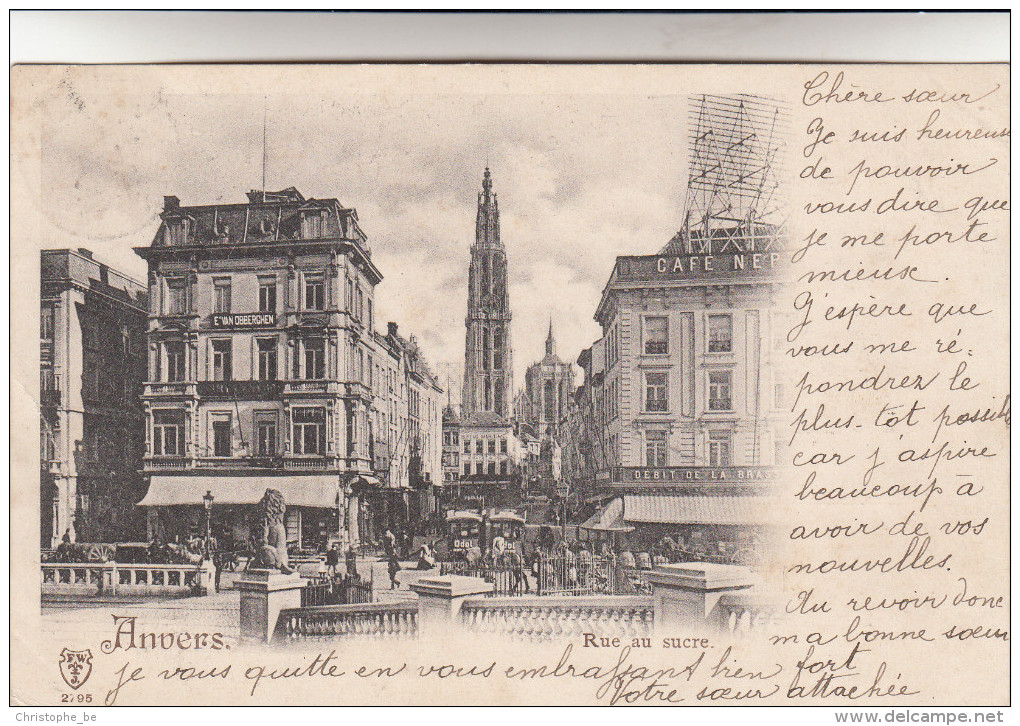 Chère sœur
Je suis heureuse
de pouvoir
vous dire que
je me porte
mieux.
J'espère que
vous me ré-
pondrez le
plus-tôt possible
car j'aspire
beaucoup à
avoir de vos
nouvelles.
Au revoir donc
ma bonne sœur
je vous quitte en vous embrassant bien fort
Votre sœur attachée
E. VAN OBBERGHEN
CAFÉ NEP
DÉBIT DE LA BRAS
Odol
Odol
Anvers.
Rue au sucre.
F W
2795
Christophe_be
www.delcampe.net